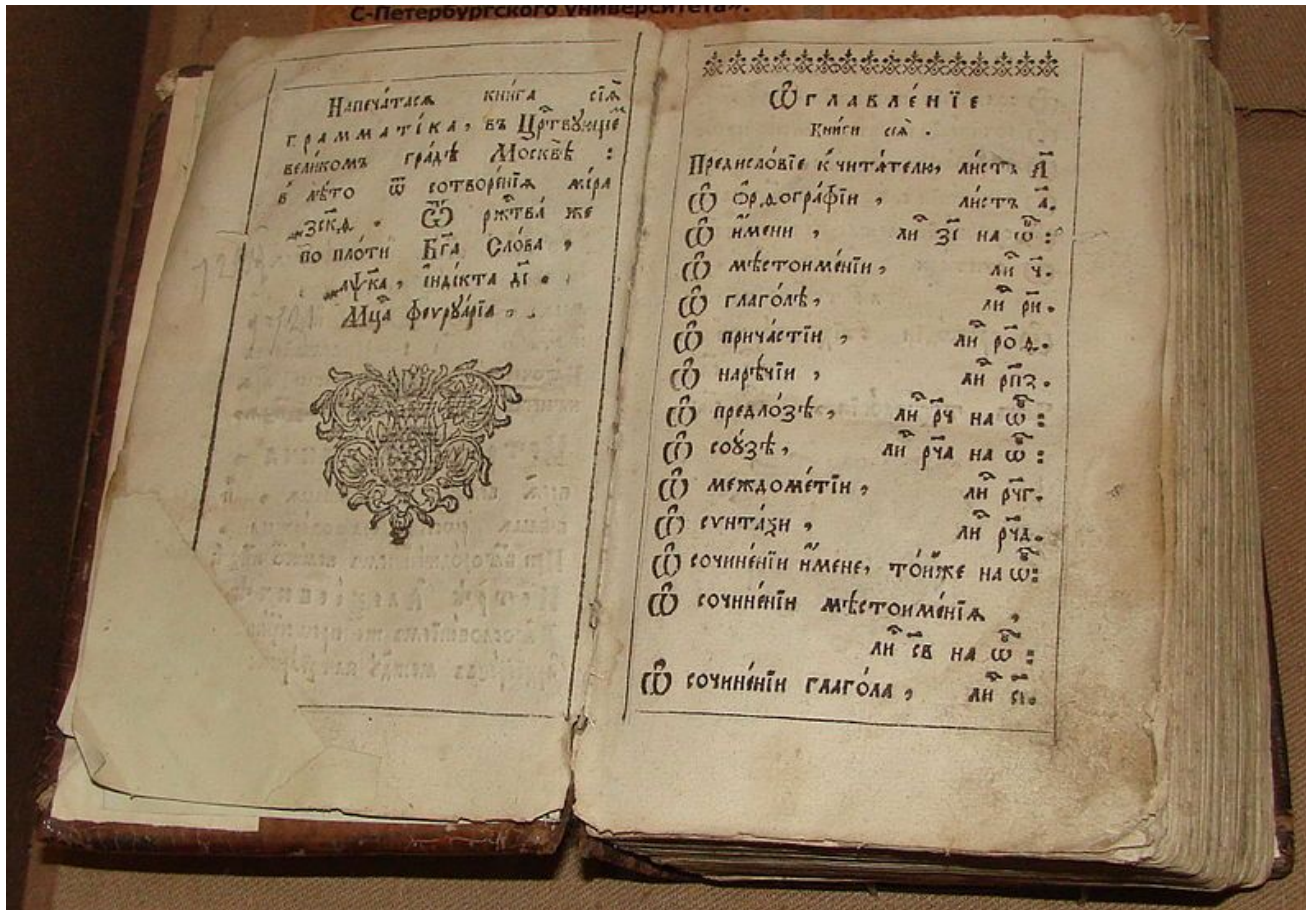 С-Петербургского университета".
Напеча́тасѧ кни́га сїѧ̀
грамма́тїка, въ Црⷭ҇твꙋющеⷨ
вели́комъ гра́дѣ Москвѣ̀ :
в̾ лѣ́то ѿ сотворе́нїѧ мі́ра
҂зс҃кѳ . Ѿ рж҃тва́ же
по пло́ти Бг҃а Сло́ва ,
҂аѱк҃а , їндї́кта д҃і .
Мцⷭ҇а феѵрꙋа́рїа .
Ѡ҆главле́нїе
Кни́ги сеѧ̀ .
Предисло́вїе к̾ чита́телю, ли́стъ а҃
Ѽ о҆рѳогра́фїи , ли́стъ а҃.
Ѽ и҆́мени , лиⷭ҇ з҃і на ѡ҆б̾ :
Ѽ мѣстоиме́нїи , лиⷭ҇ ч҃.
Ѽ глаго́лѣ , лиⷭ҇ р҃и.
Ѽ прича́стїи , лиⷭ҇ ро҃д.
Ѽ нарѣ́чїи , лиⷭ҇ рп҃з.
Ѽ предло́зѣ , лиⷭ҇ рч҃ на ѡ҆б̾ :
Ѽ сою́зѣ , лиⷭ҇ рч҃а на ѡ҆б̾ :
Ѽ междоме́тїи , лиⷭ҇ рч҃г.
Ѽ сѵнта́ѯи , лиⷭ҇ рч҃д.
Ѽ сочине́нїи и҆́мене, то́йже на ѡ҆б̾ :
Ѽ сочине́нїи мѣстоиме́нїѧ ,
лиⷭ҇ с҃в на ѡ҆б̾ :
Ѽ сочине́нїи глаго́ла , лиⷭ҇ с҃і.